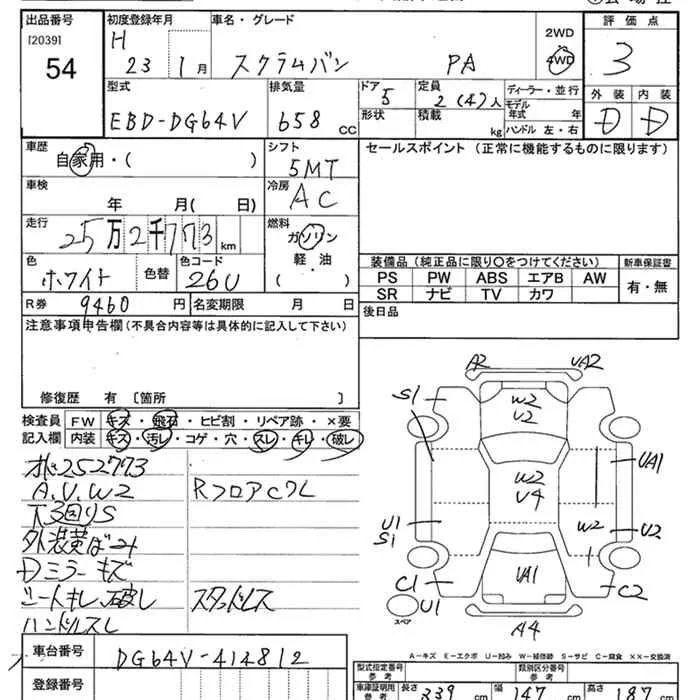 出品番号 初度登録年月 車名・グレード 2WD 評価点
[2039] H
54 23 1月 スクラムバン PA 4WD 3
外装 内装
型式 排気量 ドア 定員 ディーラー・並行
EBD-DG64V 658 CC 5 2(4)人 モデル年式 年 D D
形状 積載 kg ハンドル 左・右
車歴 シフト セールスポイント (正常に機能するものに限ります)
自家用・( ) 5MT
車検 冷房
年 月( 日) AC
走行 燃料
25万2千773km ガソリン
軽油
( )
色 色替 色コード 装備品(純正品に限り○をつけてください) 新車保証書
ホワイト 26U PS PW ABS エアB AW 有・無
SR ナビ TV カワ
R券 9460円 名変期限 月 日 後日品
注意事項申告欄(不具合内容等は具体的に記入して下さい)
修復歴 有 [箇所 ]
検査員 FW キズ・飛石・ヒビ割・リペア跡・×要
記入欄 内装 キズ・汚レ・コゲ・穴・スレ・キレ・破レ
252773
A.U.W2 RフロアCクレ
下回りS
Dミラーキズ
シートキレ、破レ スタットレス
ハンドルスレ
A2 UA2
S1 W2
U2
W2 UA1
U4
U1 W2 U2
S1
C1 UA1 C2
スペア U1
A4
A-キズ E-エクボ U-凹み W-補修跡 S-サビ C-腐食 XX-交換済
車台番号 DG64V-414812
登録番号
型式指定番号 参考 類別区分番号 参考
車庫証明用 参考 長さ 339cm 幅 147cm 高さ 187cm